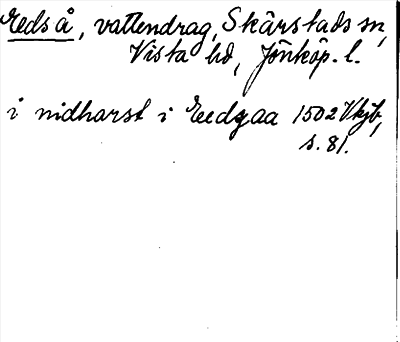 Eeds å, vattendrag, Skärstads sn,
Vista hd, Jönköp. l.
i nidharst i Eedzaa 1502 Vkjb,
s. 81.